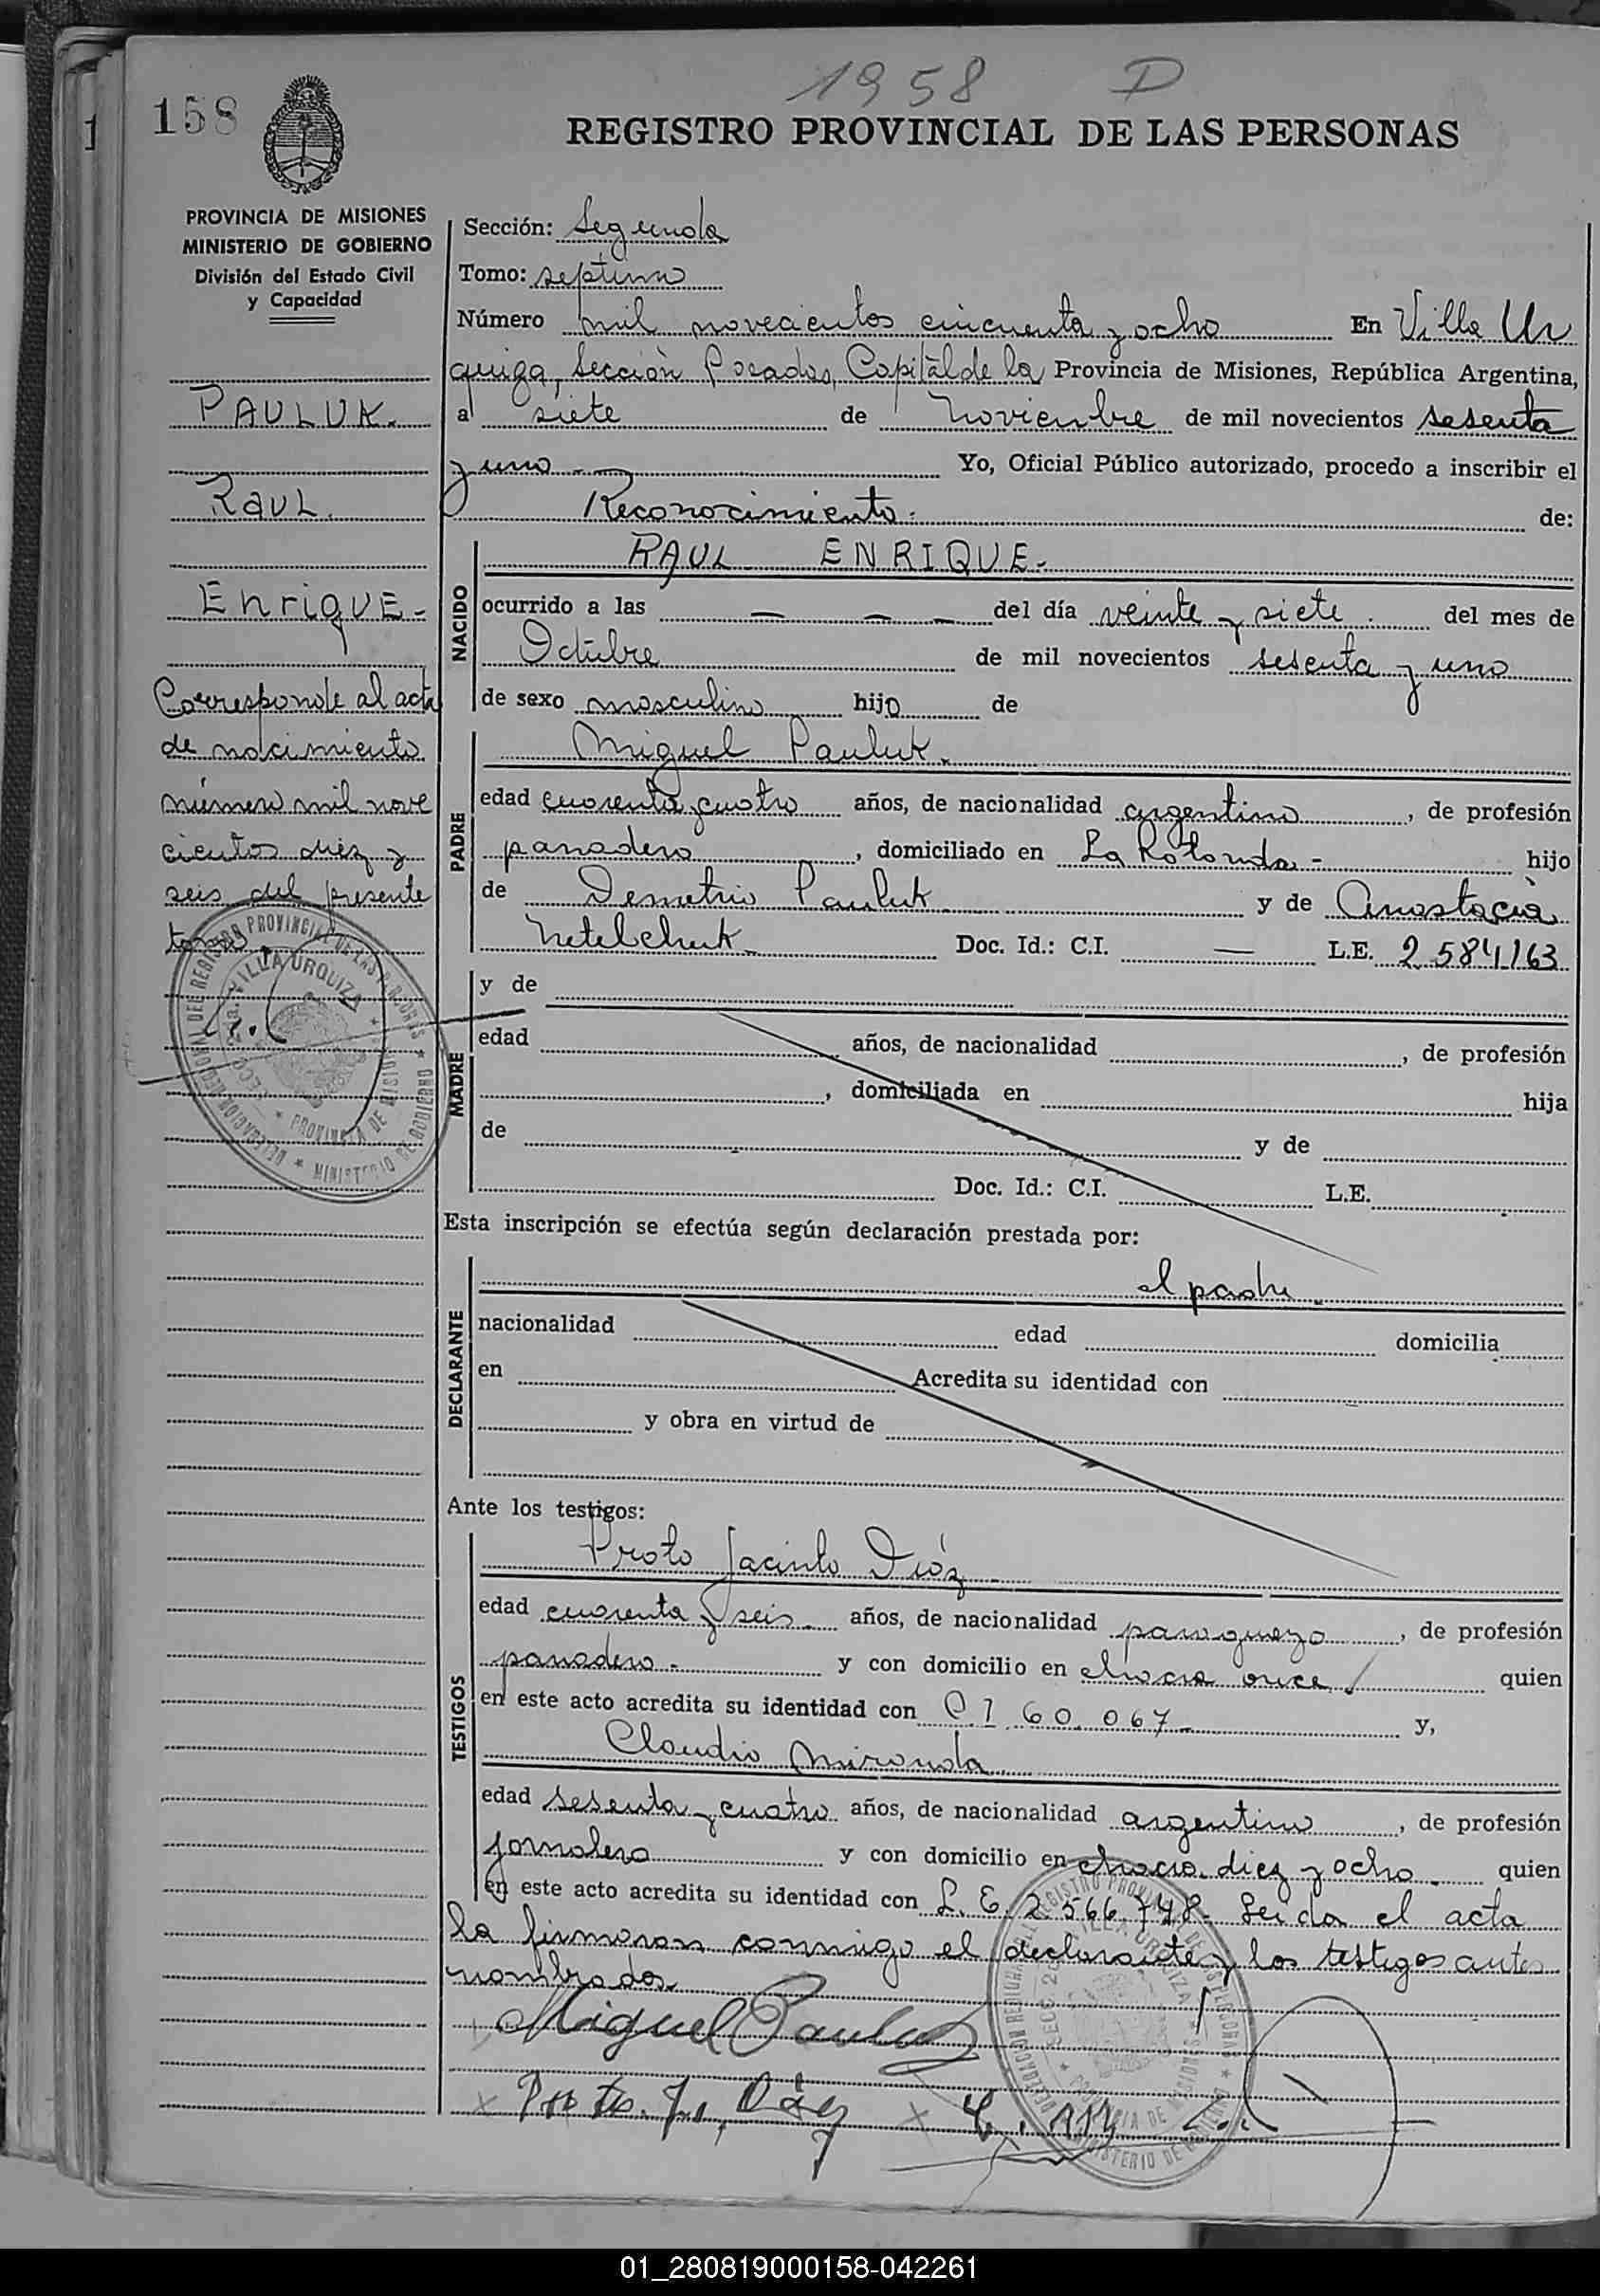 1958 D
158
REGISTRO PROVINCIAL DE LAS PERSONAS
PROVINCIA DE MISIONES
MINISTERIO DE GOBIERNO
División del Estado Civil
y Capacidad
PAULUK.
RAUL.
ENRIQUE-
Corresponde al acta
de nacimiento
número mil nove
cientos diez y
seis del presente
tomo
Sección: Segunda
Tomo: septimo
Número mil novecientos cincuenta y ocho En Villa Ur
quiza, Sección Posadas, Capital de la Provincia de Misiones, República Argentina,
a siete de Noviembre de mil novecientos sesenta
y uno Yo, Oficial Público autorizado, procedo a inscribir el
Reconocimiento. de:
NACIDO
RAUL ENRIQUE.
ocurrido a las — — — del día veinte y siete del mes de
Octubre de mil novecientos sesenta y uno
de sexo masculino hijo de
PADRE
Miguel Pauluk.
edad cuarenta y cuatro años, de nacionalidad argentino, de profesión
panadero, domiciliado en La Rotonda - hijo
de Demetrio Pauluk y de Anastacia
Netelchuk Doc. Id.: C.I. — L.E. 2584163
MADRE
y de
edad años, de nacionalidad , de profesión
, domiciliada en hija
de y de
Doc. Id.: C.I. L.E.
Esta inscripción se efectúa según declaración prestada por:
DECLARANTE
el padre
nacionalidad edad domicilia
en Acredita su identidad con
y obra en virtud de
Ante los testigos:
TESTIGOS
Proto Jacinto Diáz
edad cuarenta y seis años, de nacionalidad paraguayo, de profesión
panadero y con domicilio en chacra once quien
en este acto acredita su identidad con C.I 60.067 y,
Claudio Miranda
edad sesenta y cuatro años, de nacionalidad argentino, de profesión
jornalero y con domicilio en chacra diez y ocho quien
en este acto acredita su identidad con L.E. 2.566.748. Leida el acta
la firmaron conmigo el declarante y los testigos antes
nombrados
Miguel Pauluk
Proto. J. Diáz
DELEGACION REGIONAL DEL REGISTRO PROVINCIAL DE LAS PERSONAS * MINISTERIO DE GOBIERNO *
SECC. 2a. VILLA URQUIZA * PROVINCIA DE MISIONES *
01_280819000158-042261